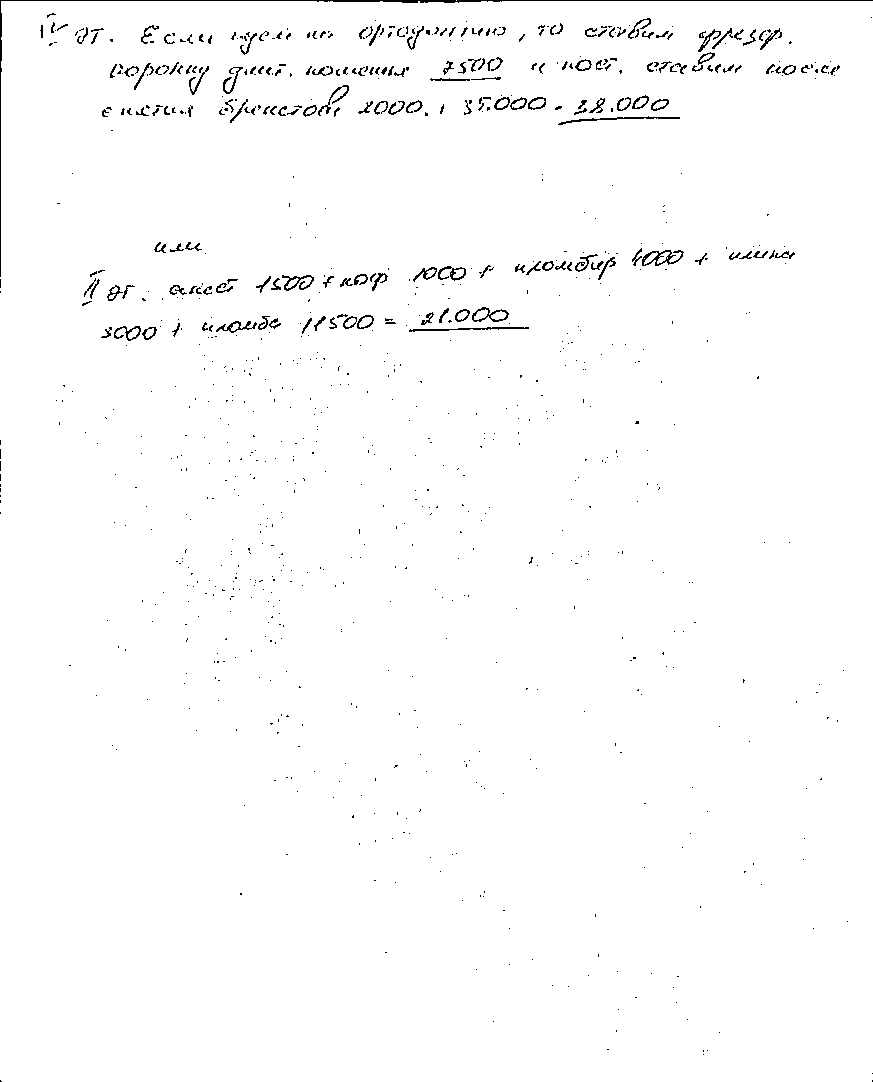 IV эт. Если идем на ортодонтию, то ставим фрезер.
коронку длит. ношения 7500 и пост. ставим после
снятия брекетов 2000. + 35.000 = 38.000
или
II эт. анест 1500 + коф 1000 + пломбир 4000 + шина
3000 + пломба 11500 = 21.000